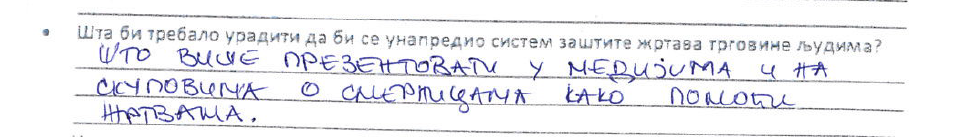 • Шта би требало урадити да би се унапредио систем заштите жртава трговине људима?
ШТО ВИШЕ ПРЕЗЕНТОВАТИ У МЕДИЈИМА И НА
СКУПОВИМА О СМЕРНИЦАМА КАКО ПОМОЋИ
ЖРТВАМА.